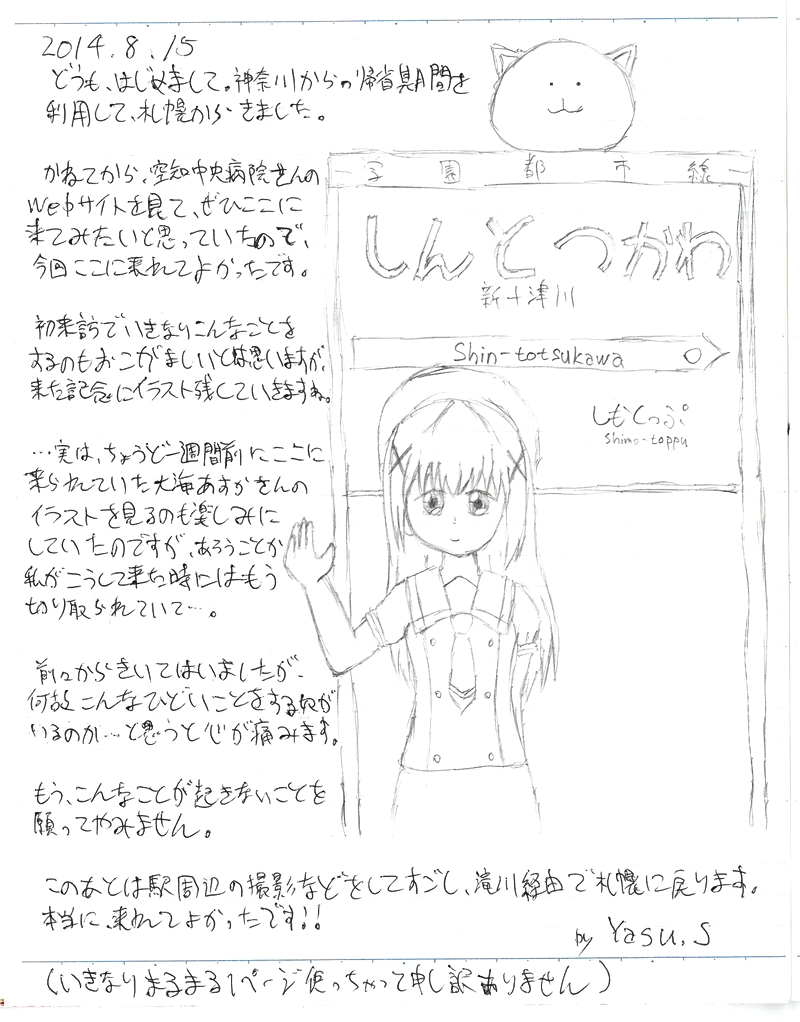 2014.8.15
どうも、はじめまして。神奈川からの帰省期間を
利用して、札幌からきました。
かねてから、空知中央病院さんの
Webサイトを見て、ぜひここに
来てみたいと思っていたので、
今回ここに来れてよかったです。
初来訪でいきなりこんなことを
するのもおこがましいとは思いますが、
来た記念にイラスト残していきますね。
…実は、ちょうど一週間前にここに
来られていた大海あすかさんの
イラストを見るのも楽しみに
していたのですが、あろうことか
私がこうして来た時にはもう
切り取られていて…。
前々からきいてはいましたが、
何故こんなひどいことをする奴が
いるのか…と思うと心が痛みます。
もう、こんなことが起きないことを
願ってやみません。
このあとは駅周辺の撮影などをしてすごし、滝川経由で札幌に戻ります。
本当に、来れてよかったです!!
by Yasu.S
(いきなりまるまる1ページ使っちゃって申し訳ありません)
学園都市線
しんとつかわ
新十津川
Shin-totsukawa
しもとっぷ
Shimo-toppu